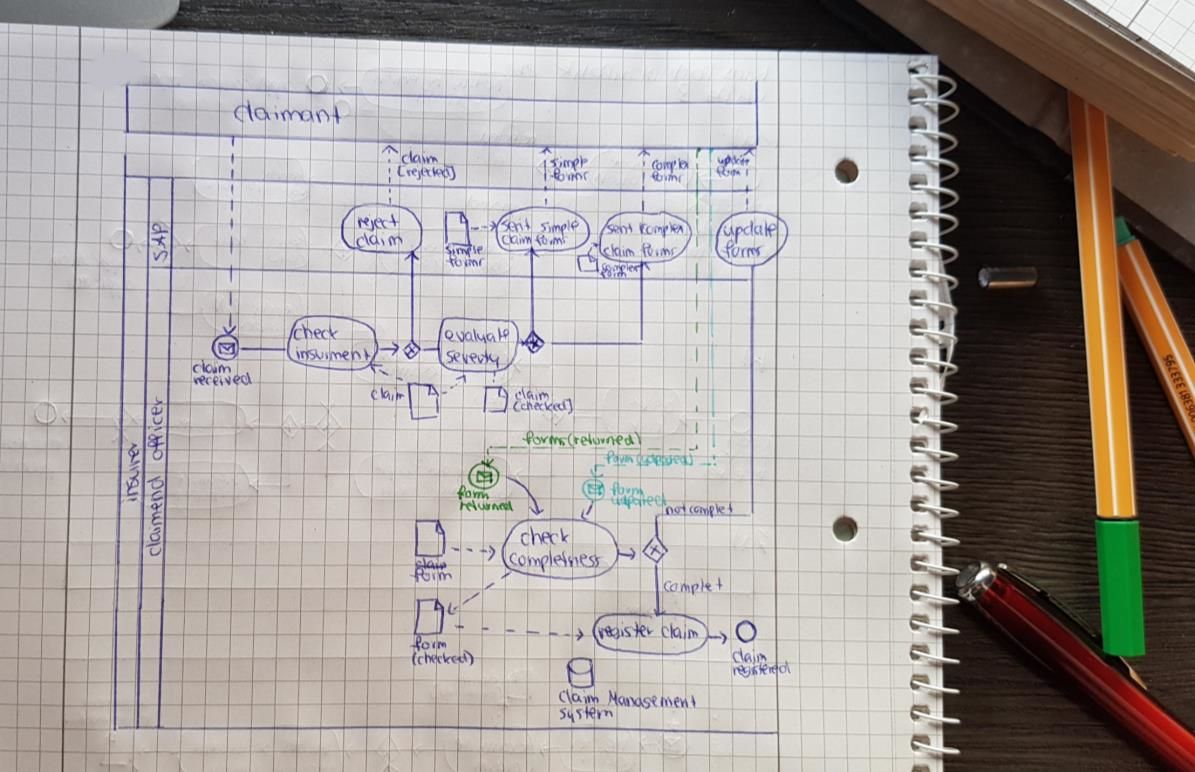 claimant
claim
[rejected]
simple
forms
complex
forms
update
form
SAP
reject
claim
simple
forms
sent simple
claim forms
sent complex
claim forms
complex
form
update
forms
claim
received
check
insurment
evaluate
severty
claim
claim
[checked]
insurer
claimend officer
forms (returned)
form (updated)
form
returned
form
updated
not complet
check
completness
claim
form
complet
form
(checked)
register claim
claim
registered
Claim Management
system